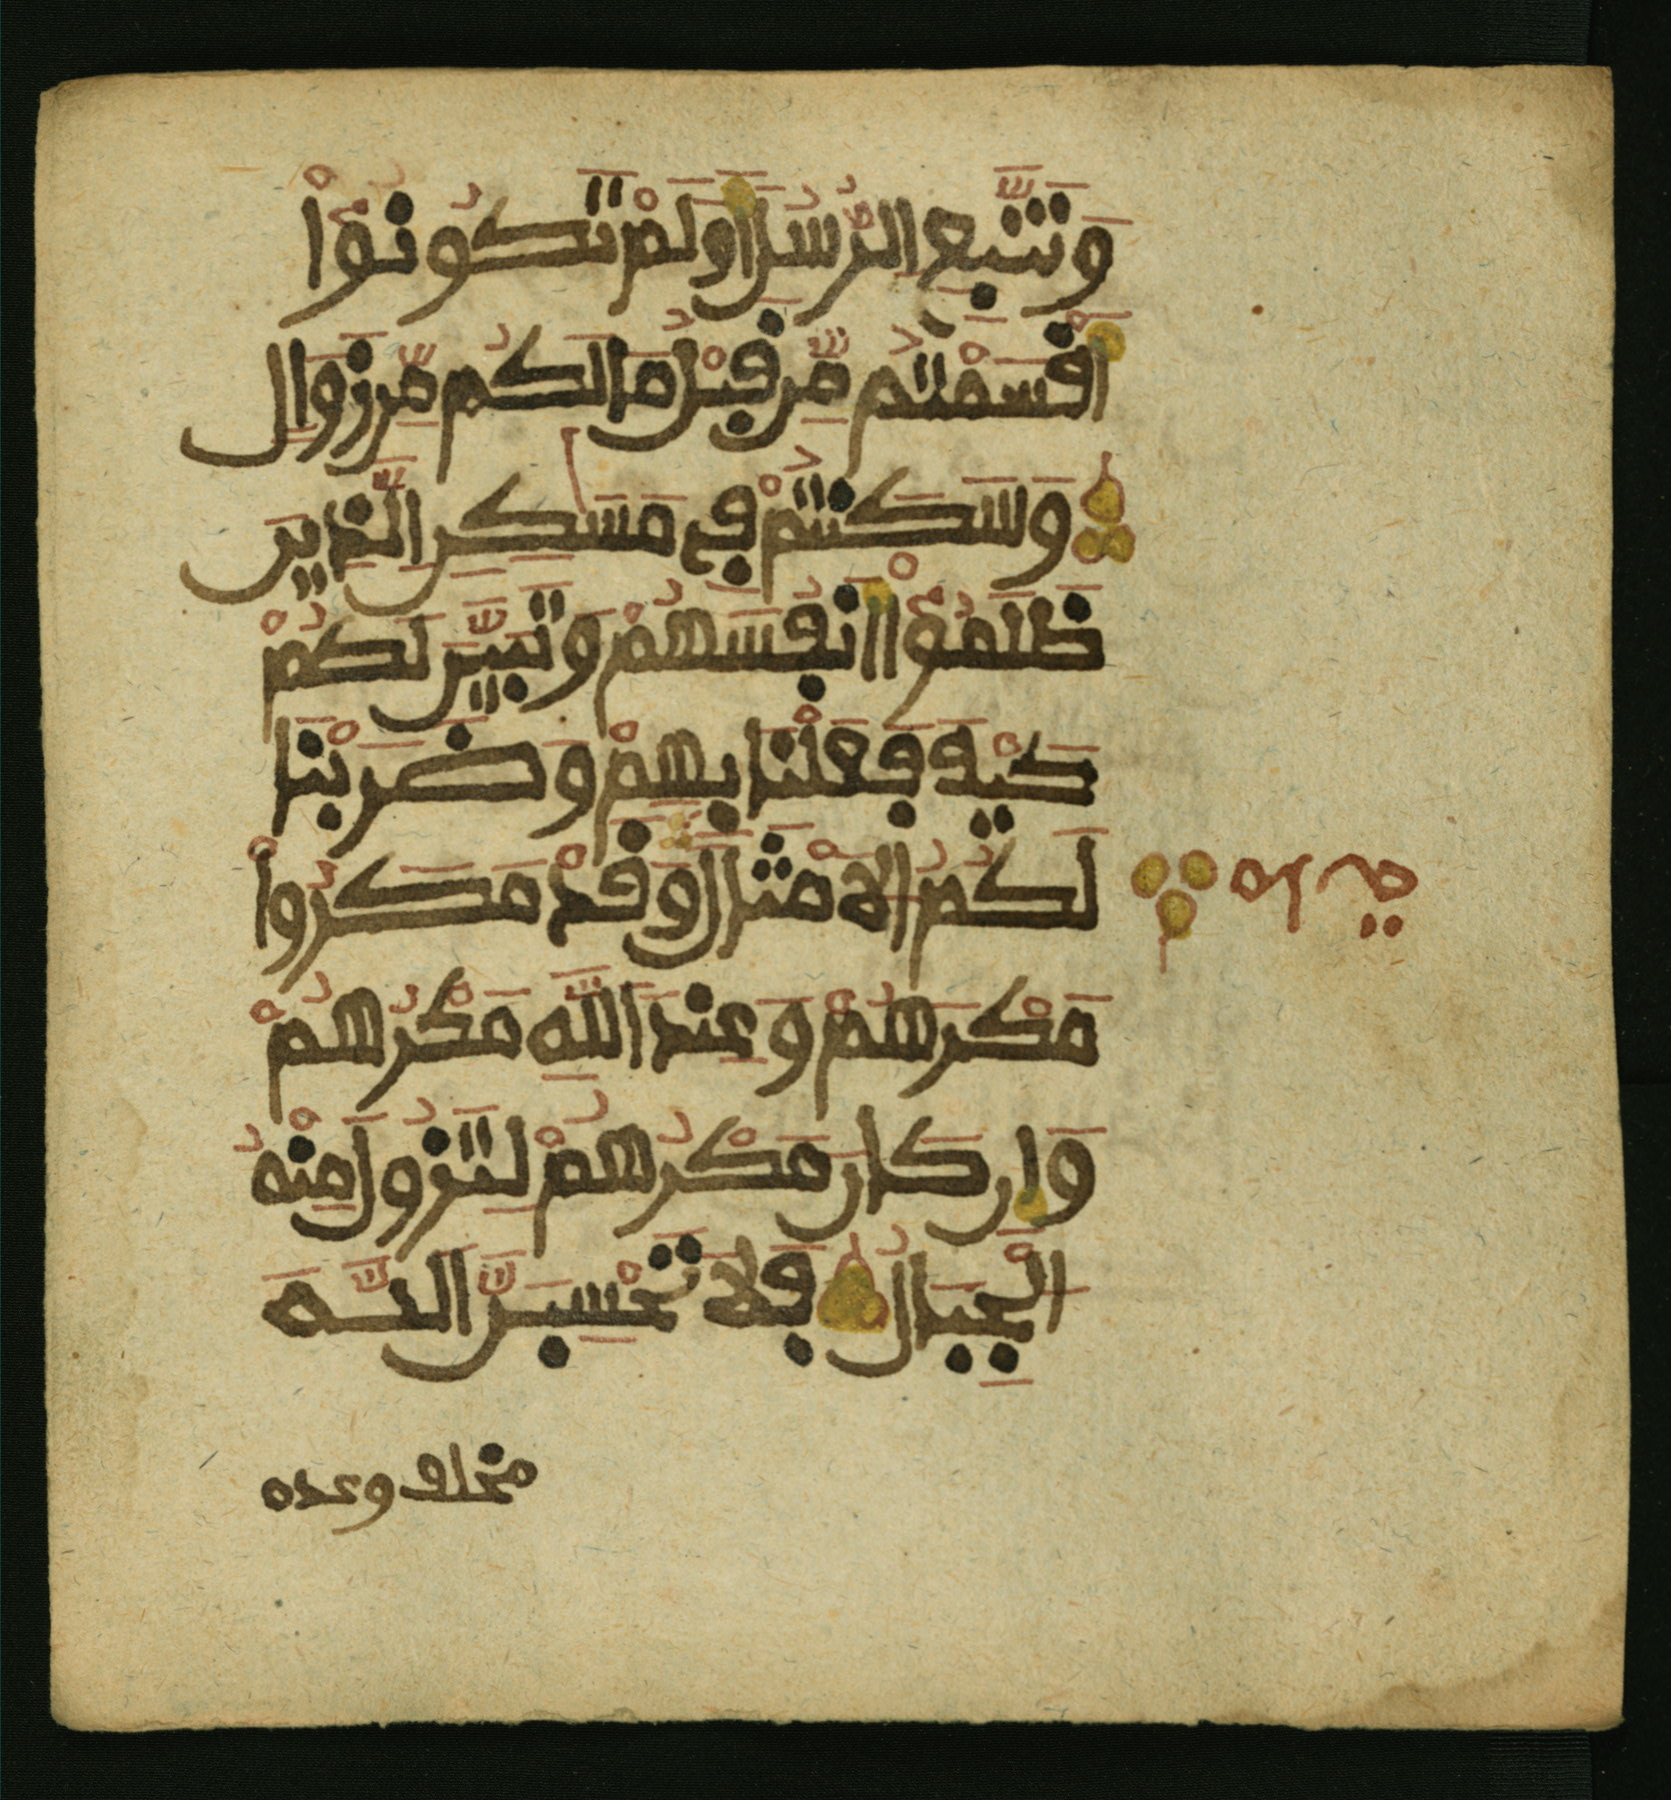 وَنَتَّبِعِ الرُّسُلَ أَوَلَمْ تَكُونُوٓاْ
أَقْسَمْتُم مِّن قَبْلُ مَا لَكُم مِّن زَوَالٍ
وَسَكَنتُمْ فِي مَسَٰكِنِ الَّذِينَ
ظَلَمُوٓاْ أَنفُسَهُمْ وَتَبَيَّنَ لَكُمْ
كَيْفَ فَعَلْنَا بِهِمْ وَضَرَبْنَا
لَكُمُ الْأَمْثَالَ وَقَدْ مَكَرُواْ
مَكْرَهُمْ وَعِندَ اللَّهِ مَكْرُهُمْ
وَإِن كَانَ مَكْرُهُمْ لِتَزُولَ مِنْهُ
الْجِبَالُ فَلَا تَحْسِبَنَّ اللَّهَ
مخلف وعده